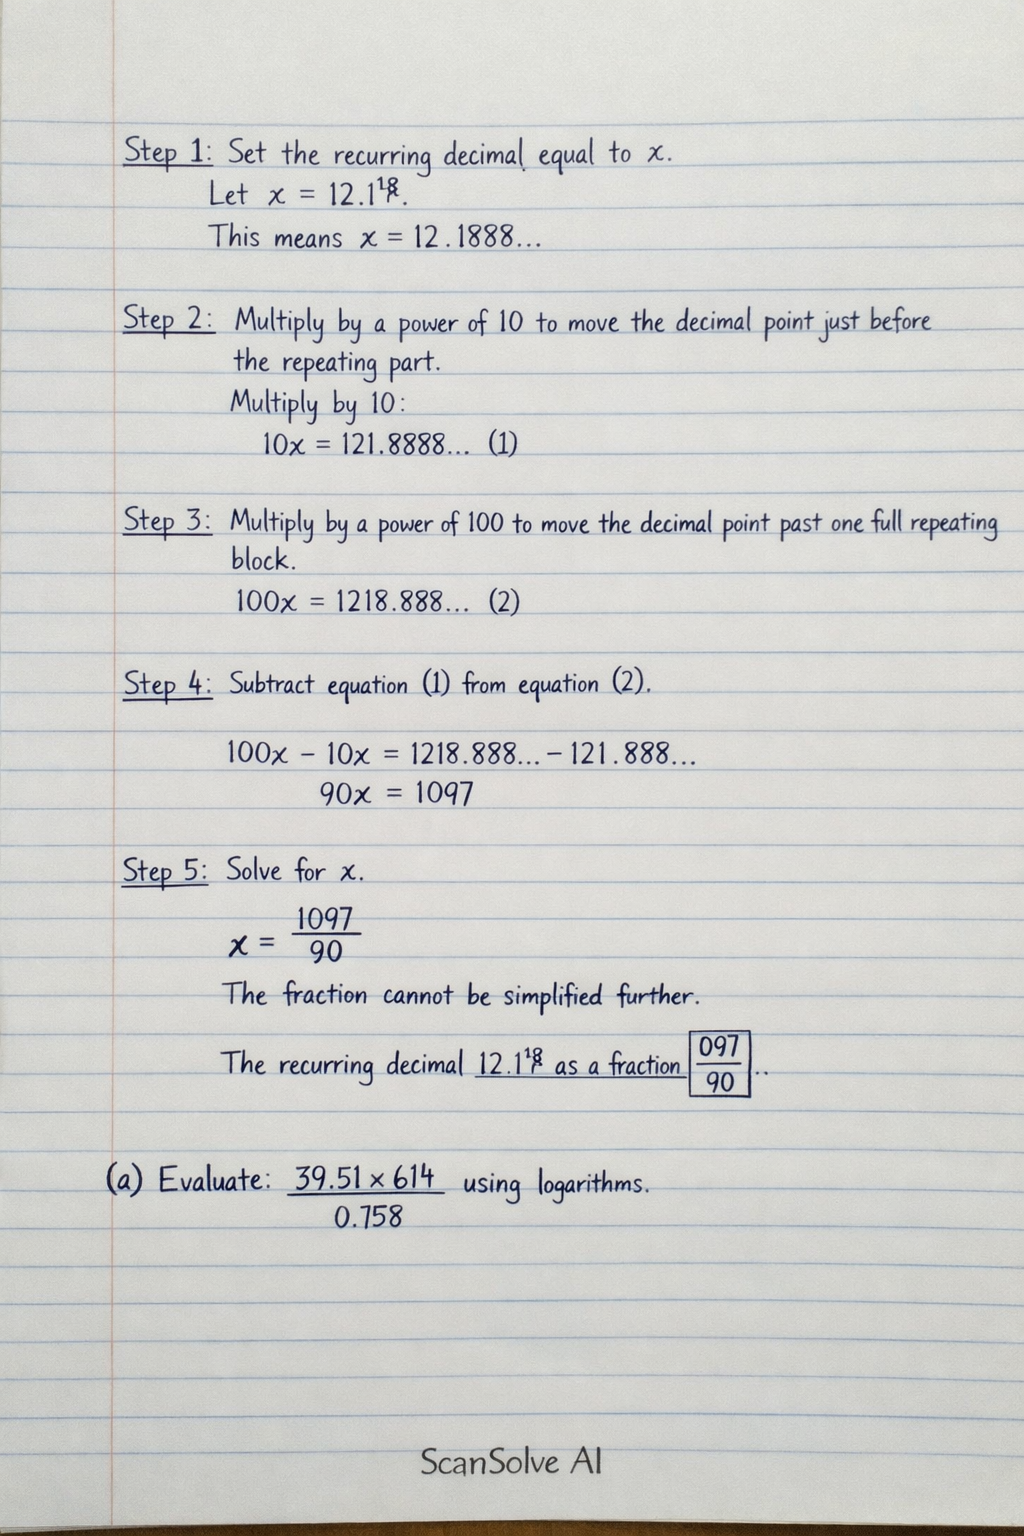 Step 1: Set the recurring decimal equal to x.
Let x = 12.1¹⁸.
This means x = 12.1888...
Step 2: Multiply by a power of 10 to move the decimal point just before
the repeating part.
Multiply by 10:
10x = 121.8888... (1)
Step 3: Multiply by a power of 100 to move the decimal point past one full repeating
block.
100x = 1218.888... (2)
Step 4: Subtract equation (1) from equation (2).
100x − 10x = 1218.888... − 121.888...
90x = 1097
Step 5: Solve for x.
x = 1097/90
The fraction cannot be simplified further.
The recurring decimal 12.1¹⁸ as a fraction 097/90 ..
(a) Evaluate: 39.51 × 614 / 0.758 using logarithms.
ScanSolve AI